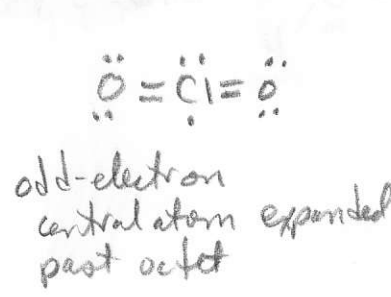 Ö = Cl = O
odd-electron
central atom expanded
past octet